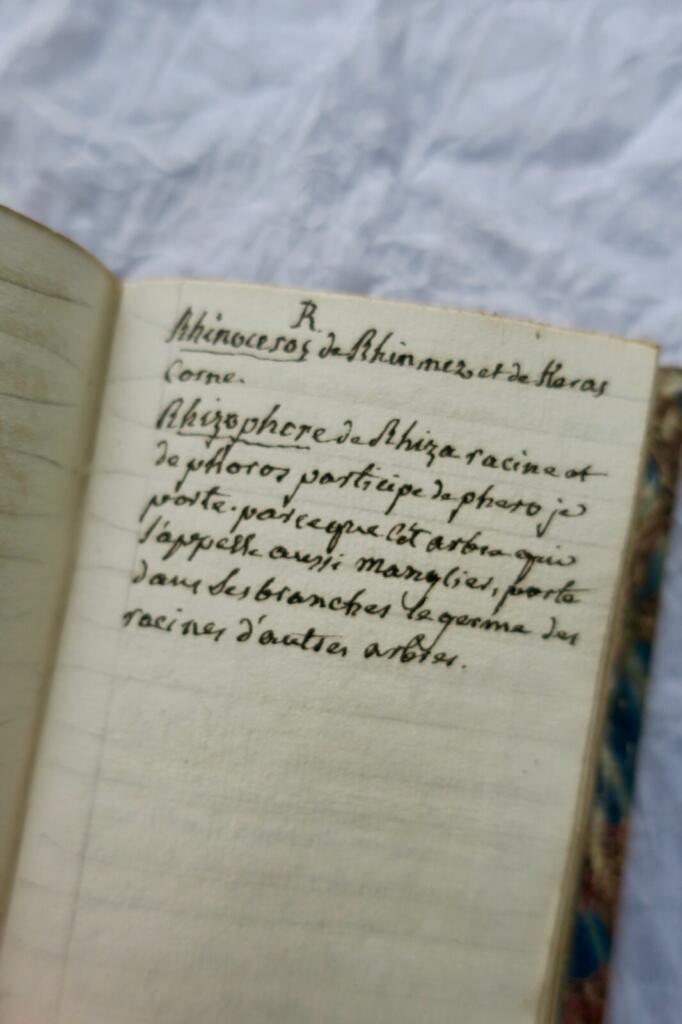 R.
Rhinoceros de Rhin nez et de Keras
Corne.
Rhizophore de Rhiza racine et
de phoros participe de phero je
porte. parceque cet arbre qui
s'appelle aussi manglier, porte
dans ses branches le germe des
racines d'autres arbres.